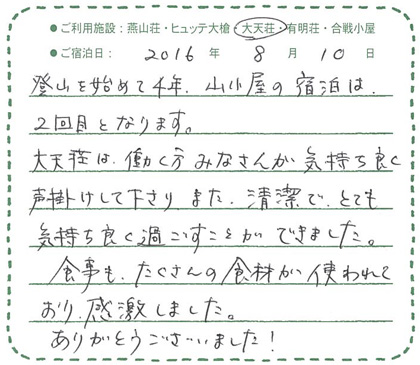 ●ご利用施設：燕山荘・ヒュッテ大槍・大天荘・有明荘・合戦小屋
●ご宿泊日： 2016 年 8 月 10 日
登山を始めて4年、山小屋の宿泊は、
2回目となります。
大天荘は、働く方みなさんが気持ち良く
声掛けして下さり また、清潔で、とても
気持ち良く過ごすことができました。
食事も、たくさんの食材が使われて
おり、感激しました。
ありがとうございました！